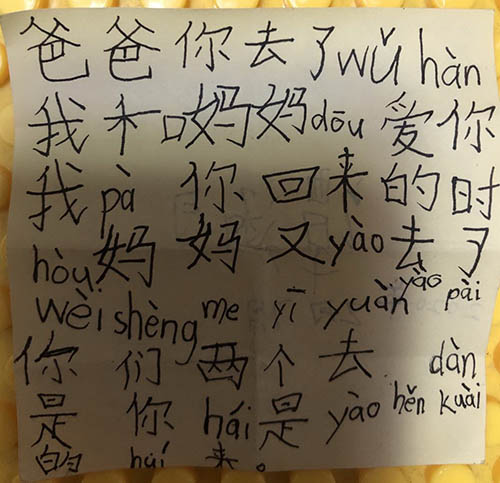 爸爸你去了wǔ hàn
我和妈妈dōu爱你
我pà你回来的时
hòu妈妈又yào去了
wèi shèng me yī yuàn yào pài
你们两个去 dàn
是你hái是yào hěn kuài
的huí来。